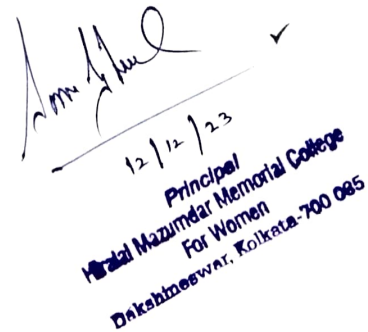 12/12/23
Principal
Hiralal Mazumdar Memorial College
For Women
Dakshineswar, Kolkata-700 035